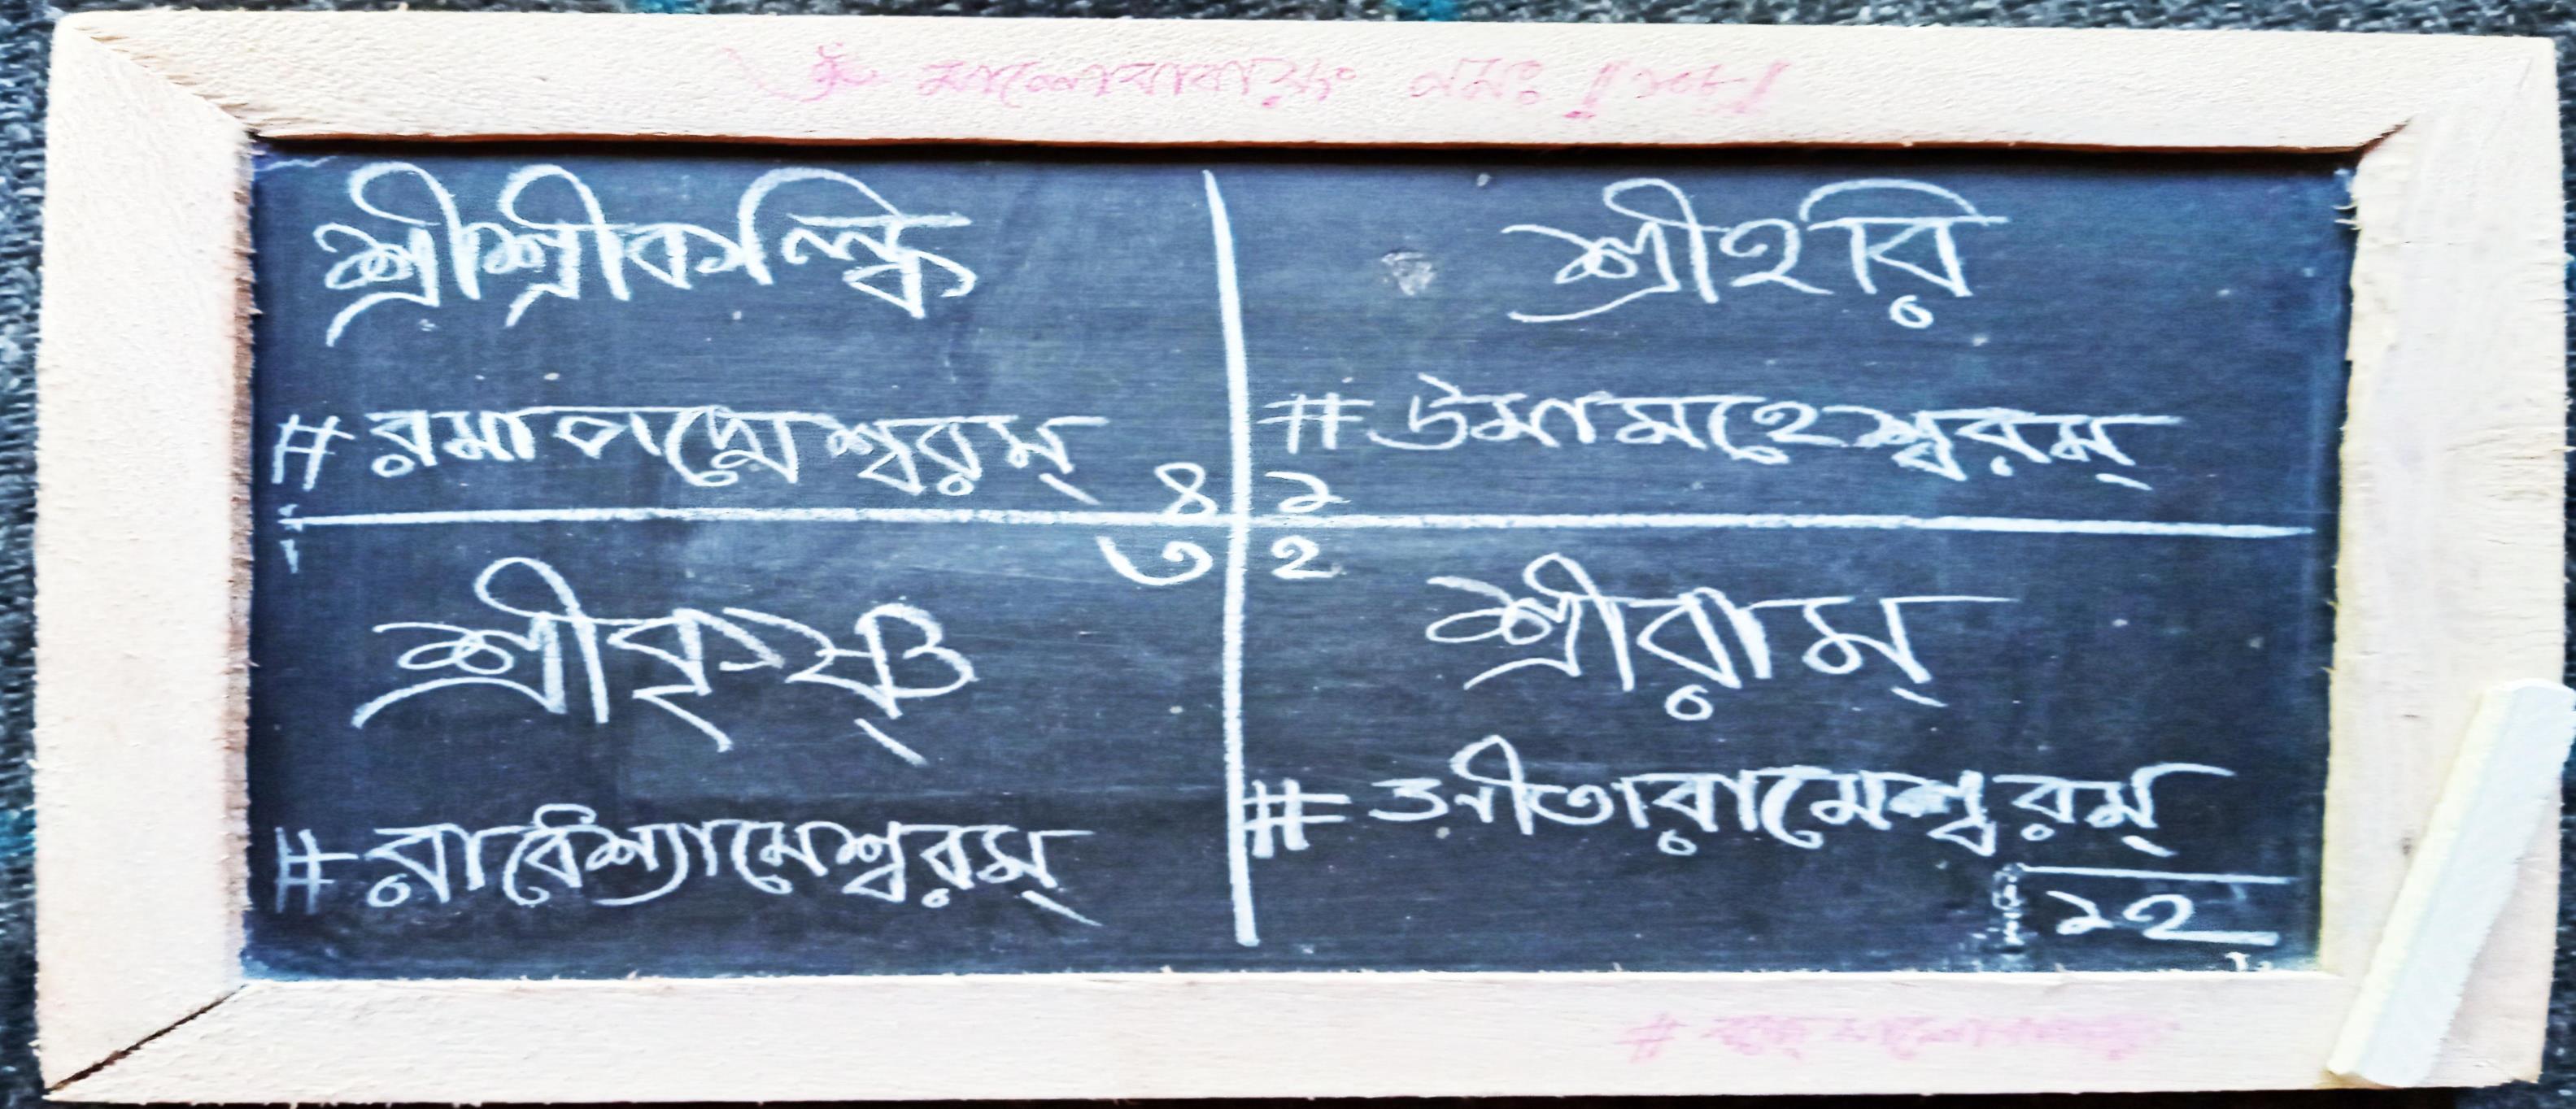 শ্রীশ্রীকল্কি
#রমাপদ্মেশ্বরম্
৪
শ্রীহরি
#উমামহেশ্বরম্
১
৩
শ্রীকৃষ্ণ
#রাধেশ্যামেশ্বরম্
২
শ্রীরাম্
#সীতারামেশ্বরম্
১২